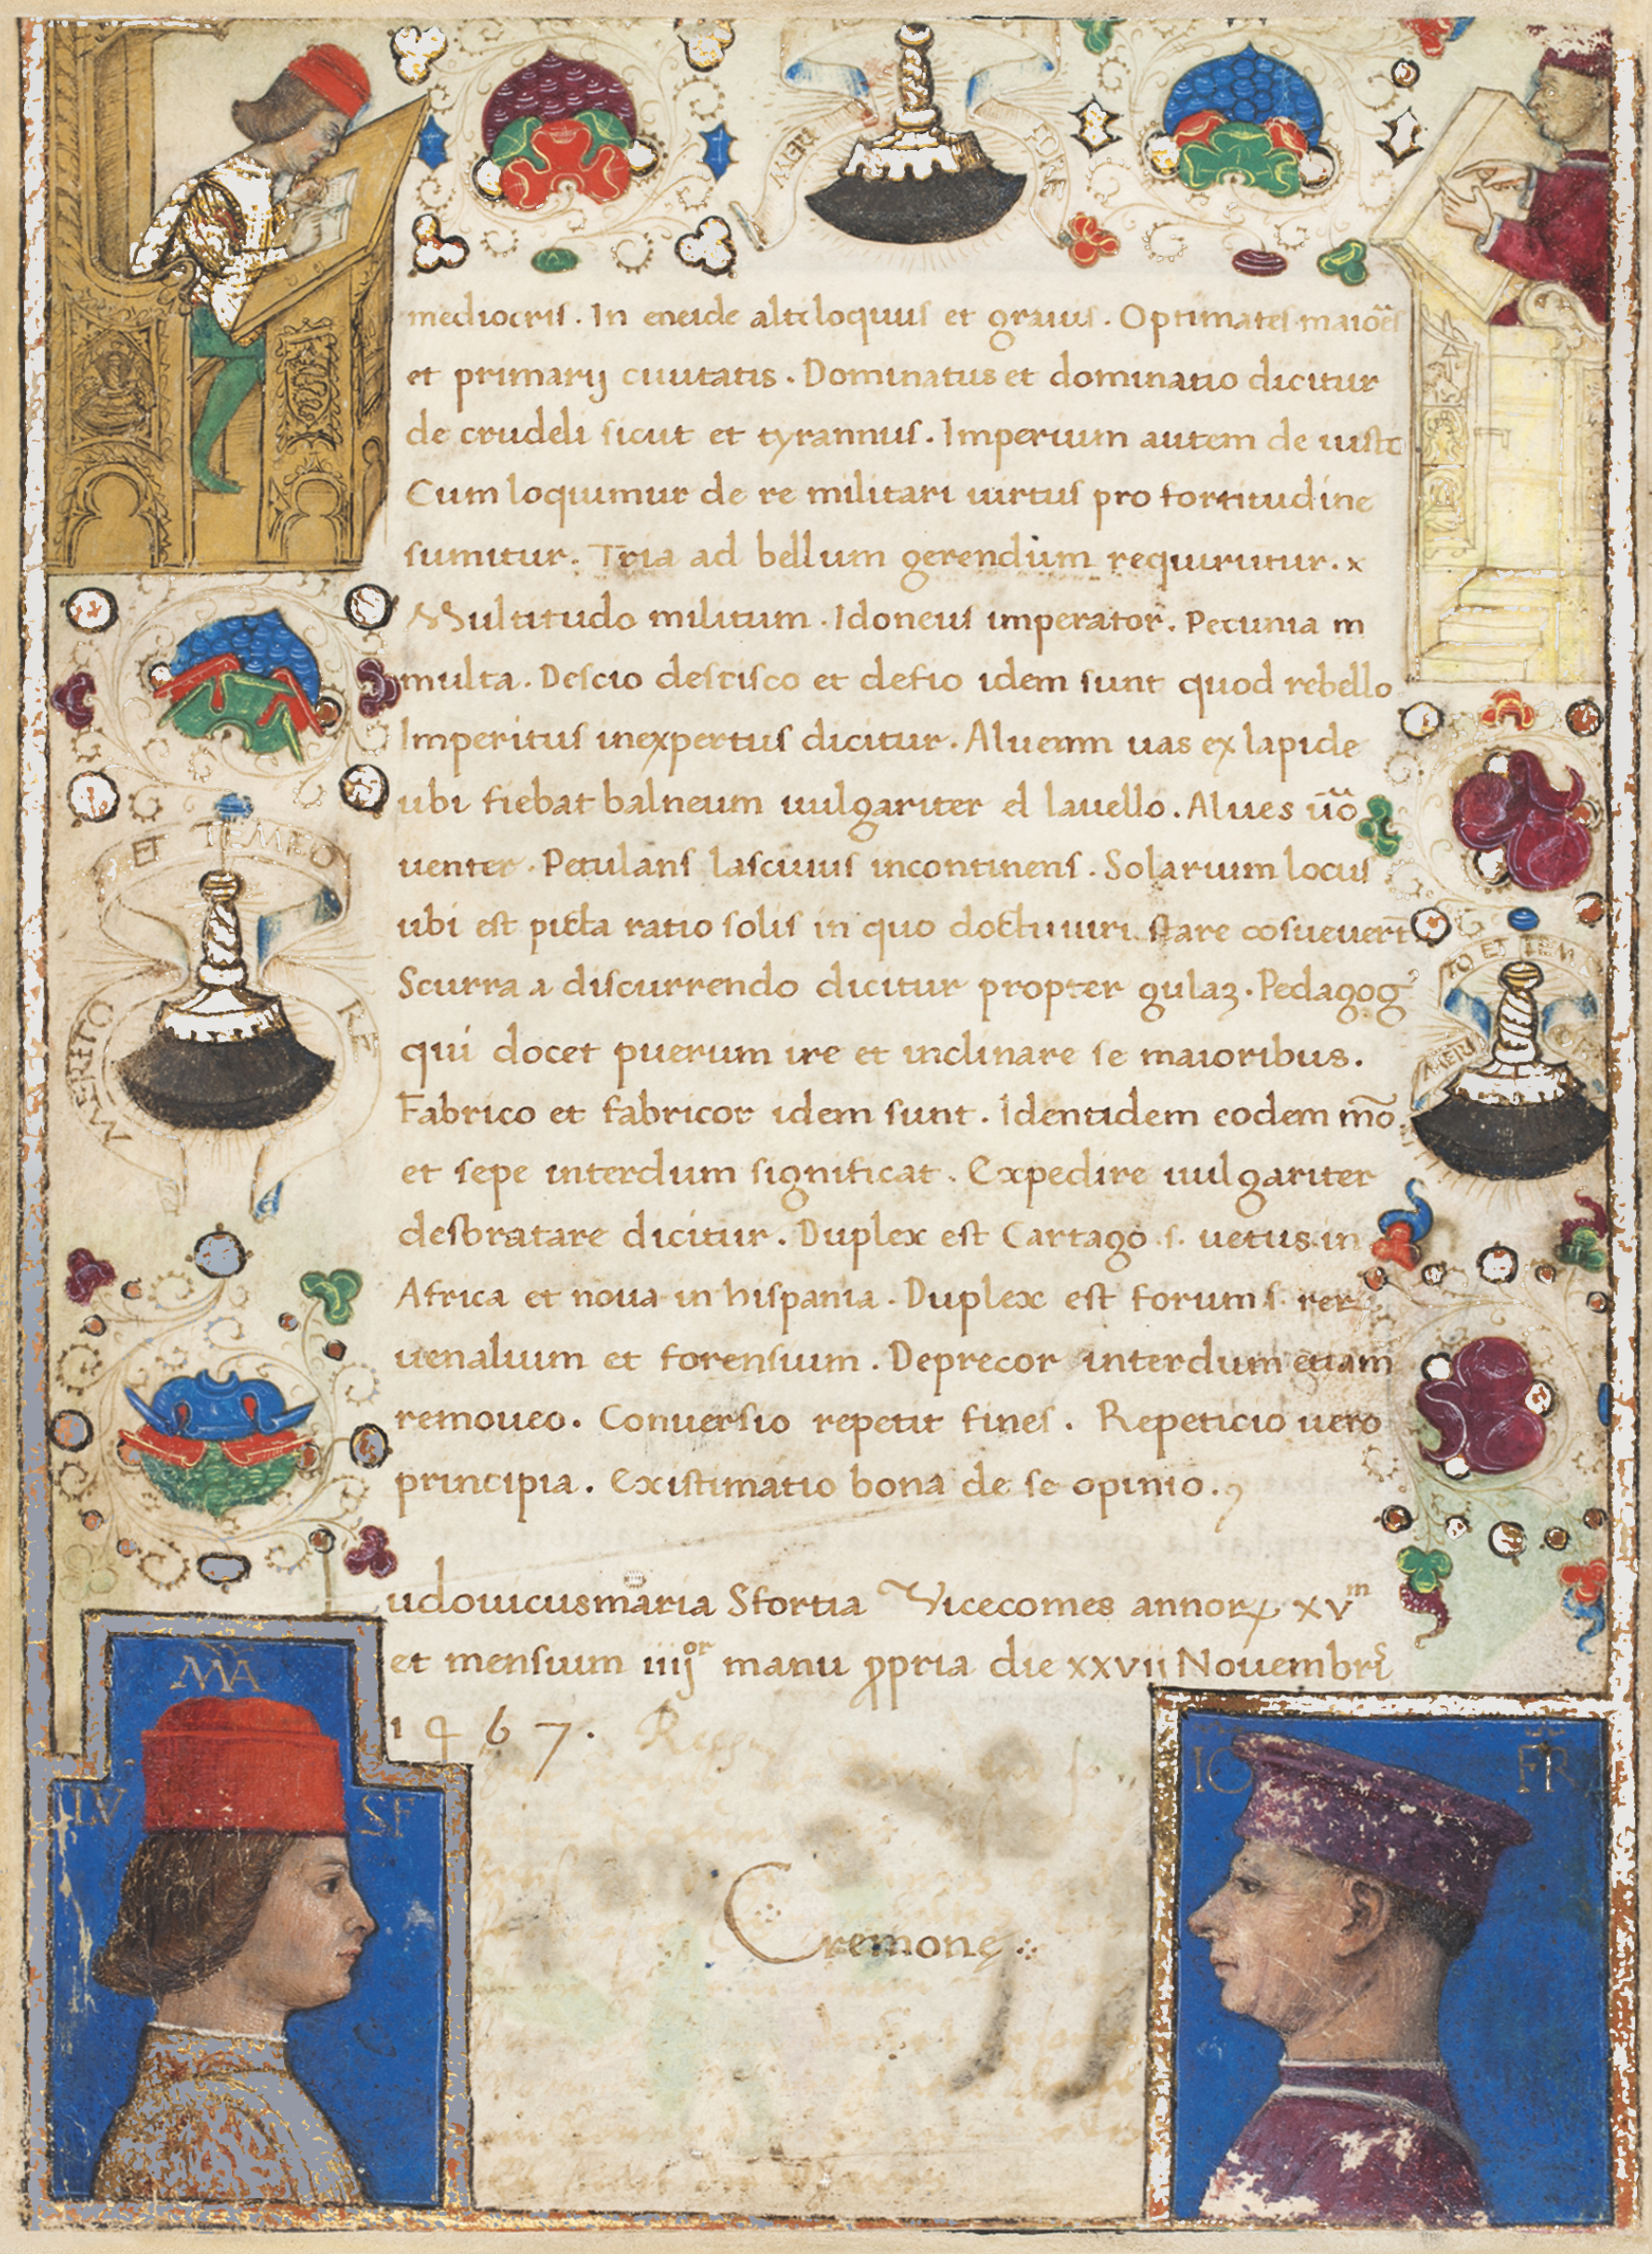 MERI
FORE
mediocris. In eneide altiloquus et grauis. Optimates maiōēs
et primarij ciuitatis. Dominatus et dominatio dicitur
de crudeli sicut et tyrannus. Imperium autem de iusto
Cum loquimur de re militari uirtus pro fortitudine
sumitur. Tria ad bellum gerendum requirūtur. x
Multitudo militum. Idoneus imperator. Pecunia m
multa. Descio descisco et defio idem sunt quod rebello
Imperitus inexpertus dicitur. Alueum uas ex lapide
ubi fiebat balneum uulgariter el lauello. Alues ūo
uenter. Petulans lasciuus incontinens. Solarium locus
ubi est picta ratio solis in quo docti uiri stare cōsueuert̄
Scurra a discurrendo dicitur propter gulaꝫ. Pedagogꝰ
qui docet puerum ire et inclinare se maioribus.
Fabrico et fabricor idem sunt. Identidem eodem mō
et sepe interdum significat. Expedire uulgariter
desbratare dicitur. Duplex est Cartago .s. uetus in
Africa et noua in hispania. Duplex est forum .s. rerꝝ
uenalium et forensium. Deprecor interdum etiam
remoueo. Conuersio repetit fines. Repeticio uero
principia. Existimatio bona de se opinio.
udouicusmaria Sfortia Vicecomes annorꝝ xvᵐ
et mensium iiijᵒʳ manu ꝓpria die xxvii Nouembris
1467.
Cremonę
MERITO
ET TEMPO
RE
MERI
TO ET TEM
MA
LV
SF
IO
FR